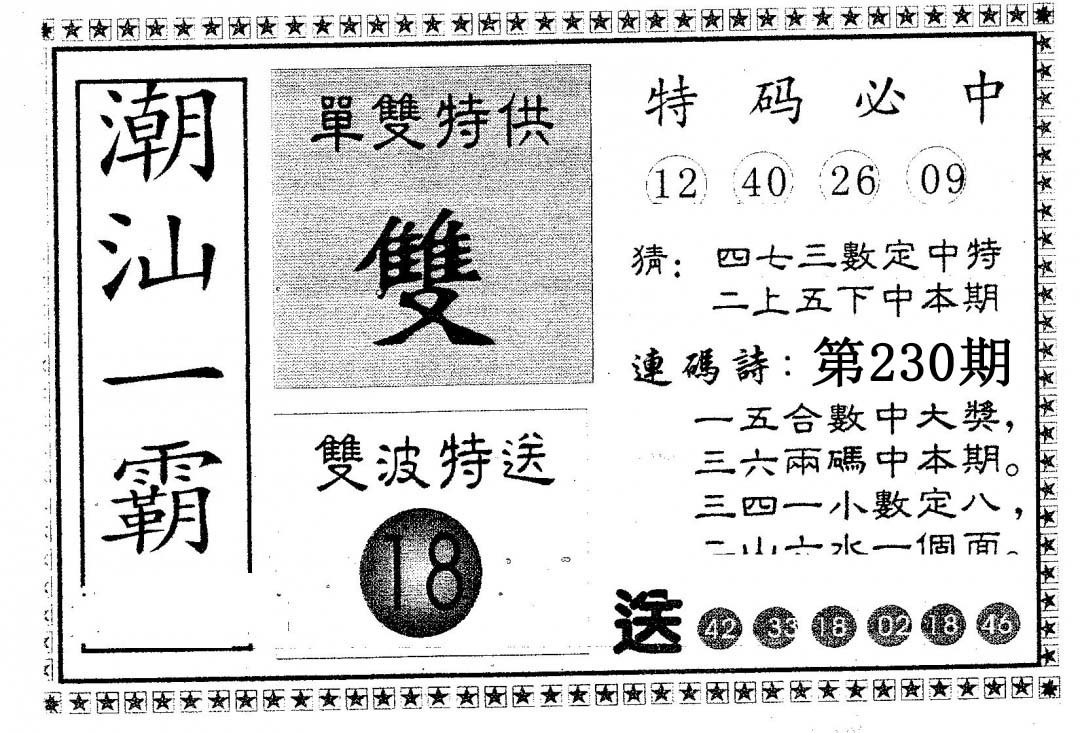 潮汕一霸
單雙特供
雙
雙波特送
18
特码必中
12 40 26 09
猜：四七三數定中特
二上五下中本期
連碼詩：第230期
一五合數中大獎，
三六兩碼中本期。
三四一小數定八，
二山六水一個面。
送 42 33 18 02 18 46